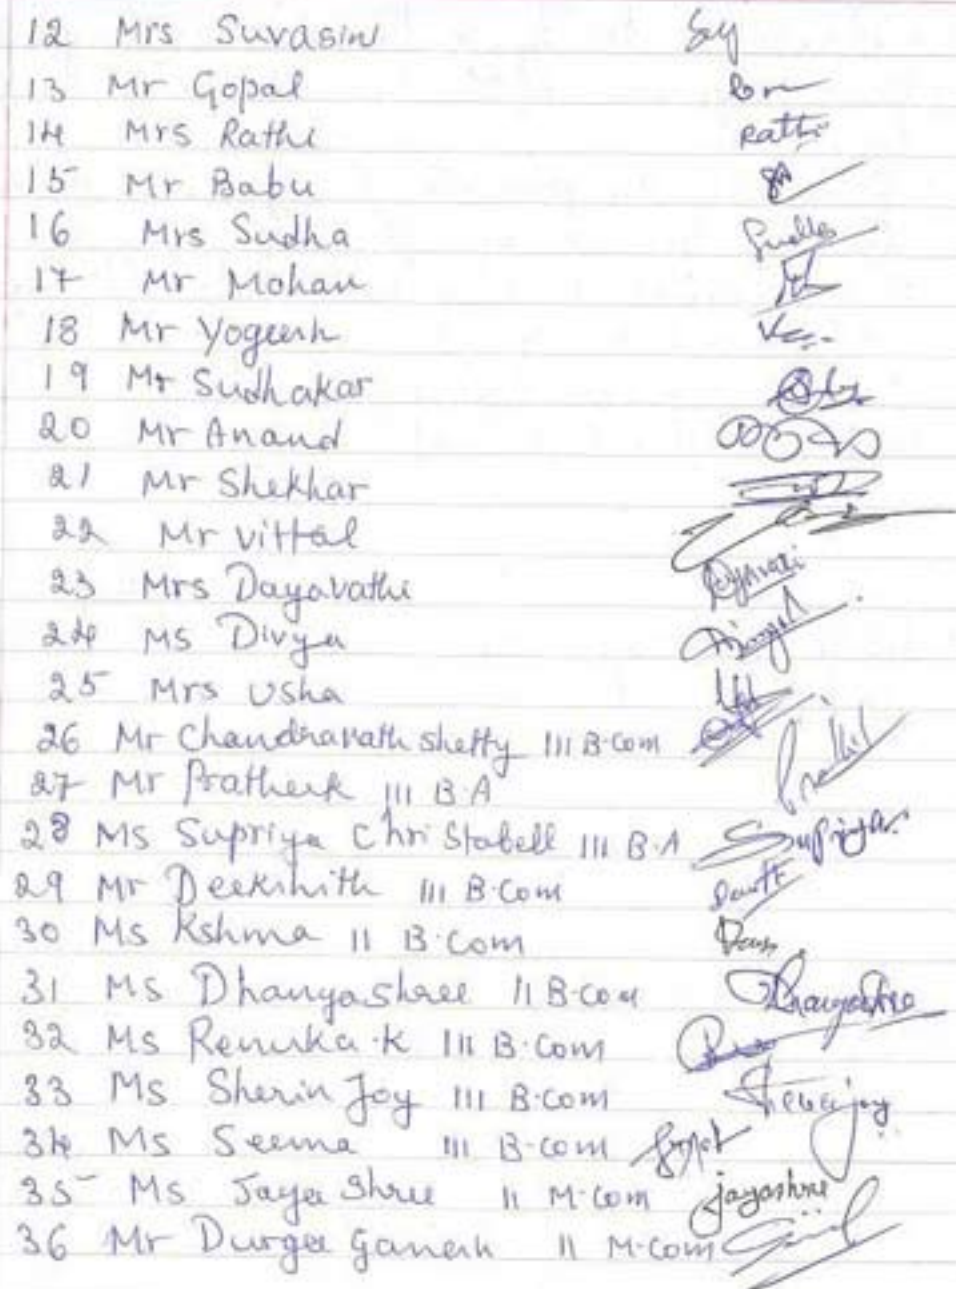 12 Mrs Suvasini
13 Mr Gopal
14 Mrs Rathi Rathi
15 Mr Babu
16 Mrs Sudha Sudha
17 Mr Mohan
18 Mr Yogeesh
19 Mr Sudhakar
20 Mr Anand
21 Mr Shekhar
22 Mr Vittal
23 Mrs Dayavathi
24 Ms Divya
25 Mrs Usha
26 Mr Chandranath Shetty III B.Com
27 Mr Pratheek III B.A
28 Ms Supriya Christabell III B.A Supriya
29 Mr Deekshith III B.Com
30 Ms Kshma II B.Com
31 Ms Dhanyashree II B.Com Dhanyashree
32 Ms Renuka.K III B.Com
33 Ms Sherin Joy III B.Com
34 Ms Seema III B.Com
35 Ms Jaya Shree II M.Com jayashree
36 Mr Durga Ganesh II M.Com